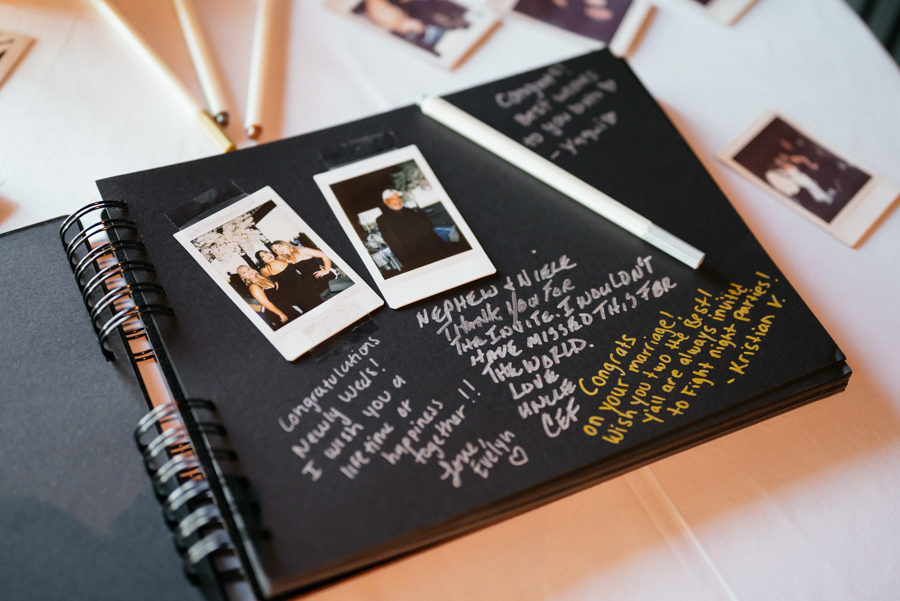 Congrats!
Best wishes
to you both ♡
- Yaqui ♡
NEPHEW & NIECE
Thank You FOR
THE INVITE. I WOULDN'T
HAVE MISSED THIS FOR
THE WORLD.
LOVE
UNCLE
CEF
Congratulations
Newly weds!
I wish you a
life time of
happiness
together!!
Love,
Evelyn
♡
Congrats
on your marriage!
Wish you two the Best!
Yall are always invited
to Fight night parties!
- Kristian V.